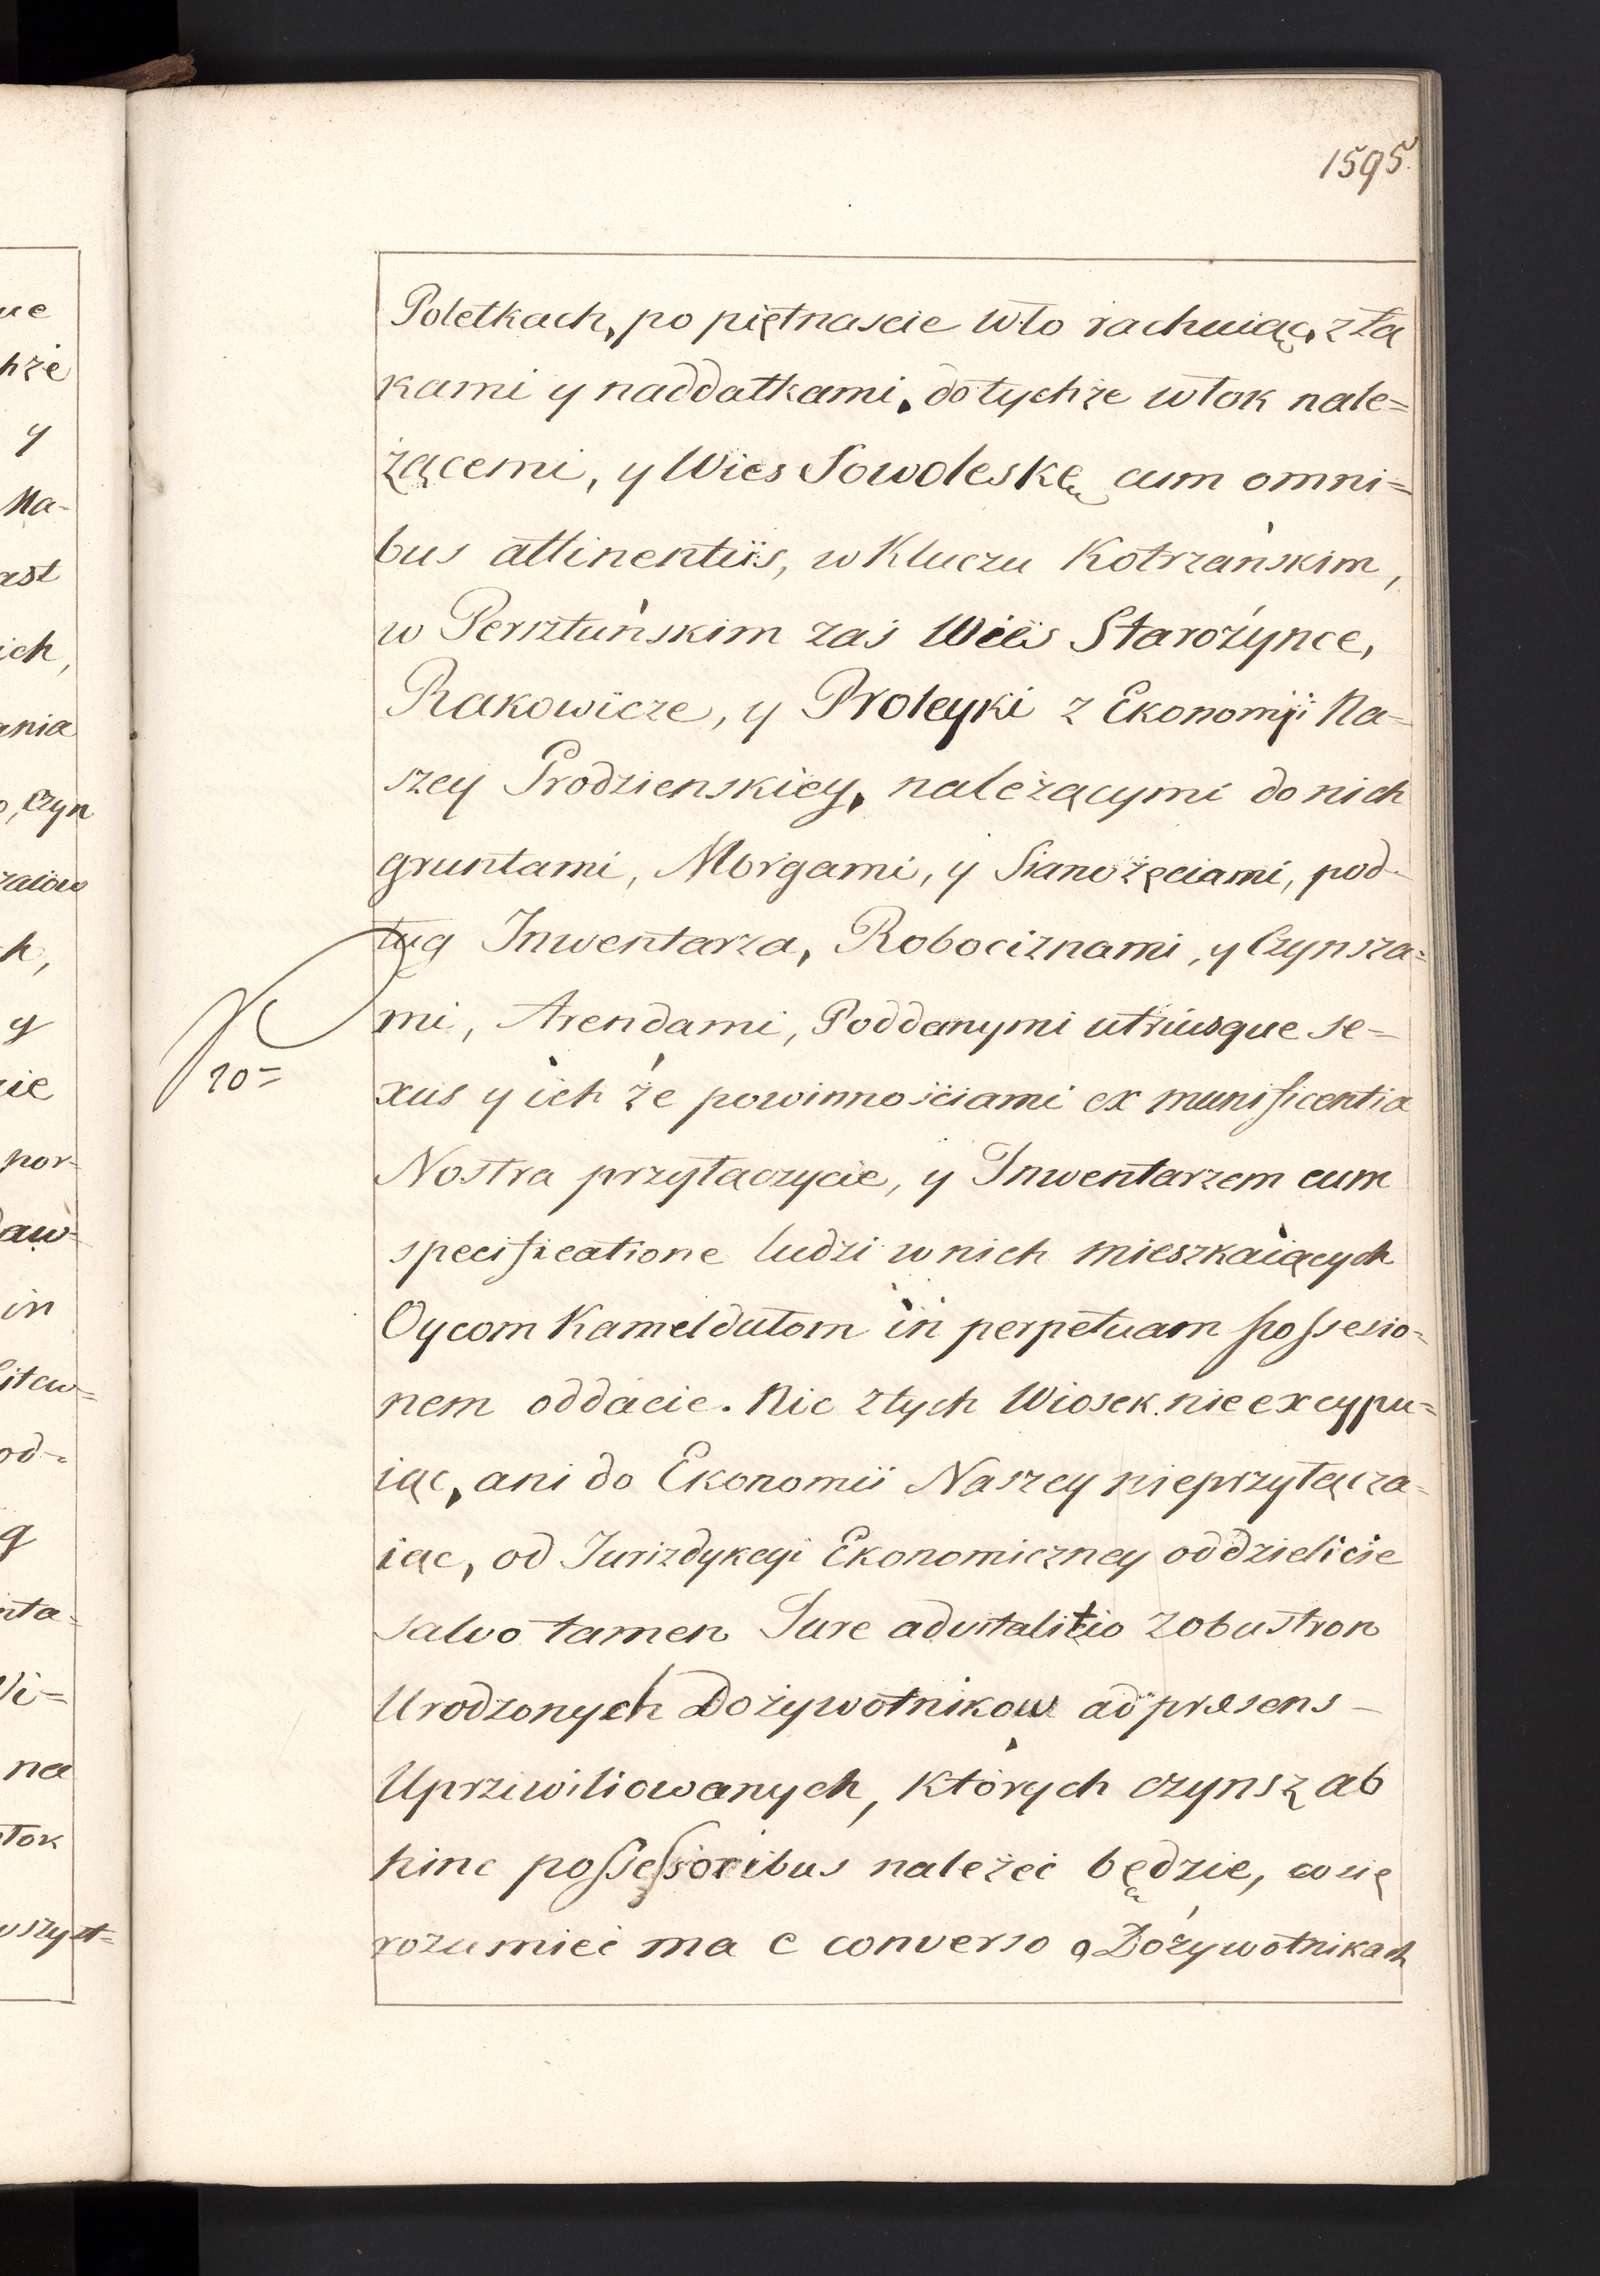 1595.
Poletkach, po piętnascie wło rachuiąc, z łą
kami y naddatkami, do tychże włok nale=
żącemi, y Wies Sowoleskę cum omni=
bus attinentiis, w Kluczu Kotrzańskim,
w Persztuńskim zaś Wieś Starożynce,
Rakowicze, y Proleyki z Ekonomji Na=
szey Grodzienskiey, należącymi do nich
gruntami, Morgami, y Sianożęciami, pod-
ług Inwentarza, Robociznami, y Czynsza=
mi, Arendami, Poddanymi utriusque se=
xus y ich że powinnościami ex munificentia
Nostra przyłączycie, y Inwentarzem cum
specificatione ludzi w nich mieszkaiących
Oycom Kameldułom in perpetuam possesio=
nem oddacie. Nic z tych Wiosek nie excypu=
iąc, ani do Ekonomii Naszey nieprzyłącza=
iąc, od Jurizdykcyi Ekonomiczney oddzielicie
salvo tamen Jure advitalitio z obu stron
Urodzonych Dożywotnikow ad præsens
Uprziwiliowanych, których czynsz ab
hinc possessoribus należeć będzie, co się
rozumieć ma e converso o Dożywotnikach
10=
ue
hże
y
Na-
ast
ich,
ania
o, Czyn
zaiow
h,
y
ie
por-
daw-
in
Litew=
od=
g
nta=
Wi=
na
włok
wszyst=